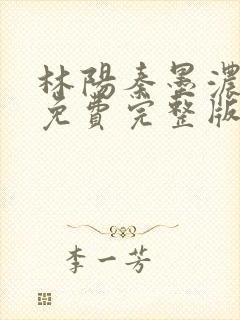 林陽秦墨濃
免費完整版
李一芳